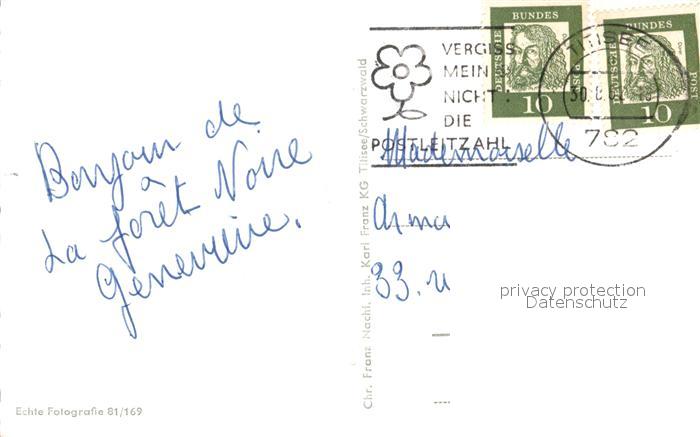 Bonjour de
La forêt Noire
Geneviève.
Echte Fotografie 81/169
Chr. Franz Nachf. Inh. Karl Franz KG Titisee/Schwarzwald
VERGISS
MEIN
NICHT
DIE
POSTLEITZAHL
DEUTSCHE
BUNDES
POST
10
DEUTSCHE
BUNDES
POST
10
TITISEE
782
Mademoiselle
33.
privacy protection
Datenschutz